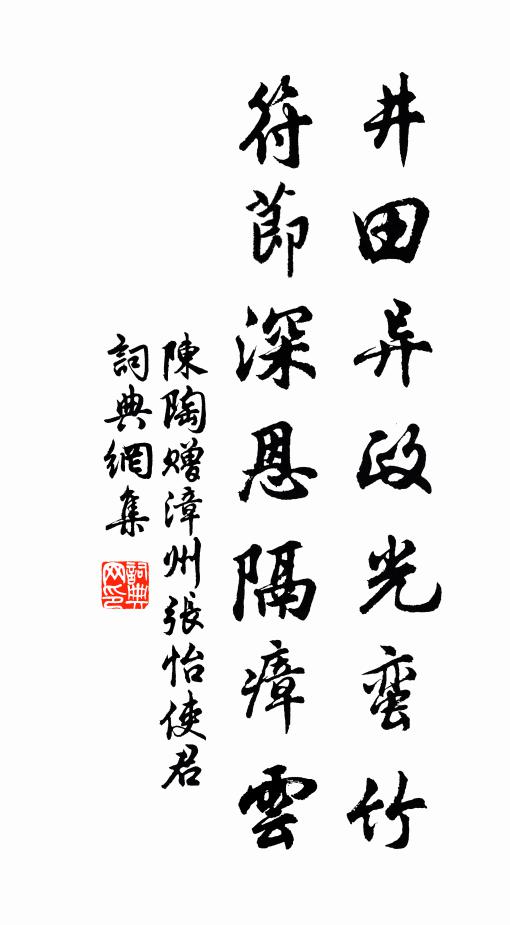 井田异政光蛮竹
符節深恩隔瘴雲
陳陶赠漳州張怡使君
詞典網集
詞典网印